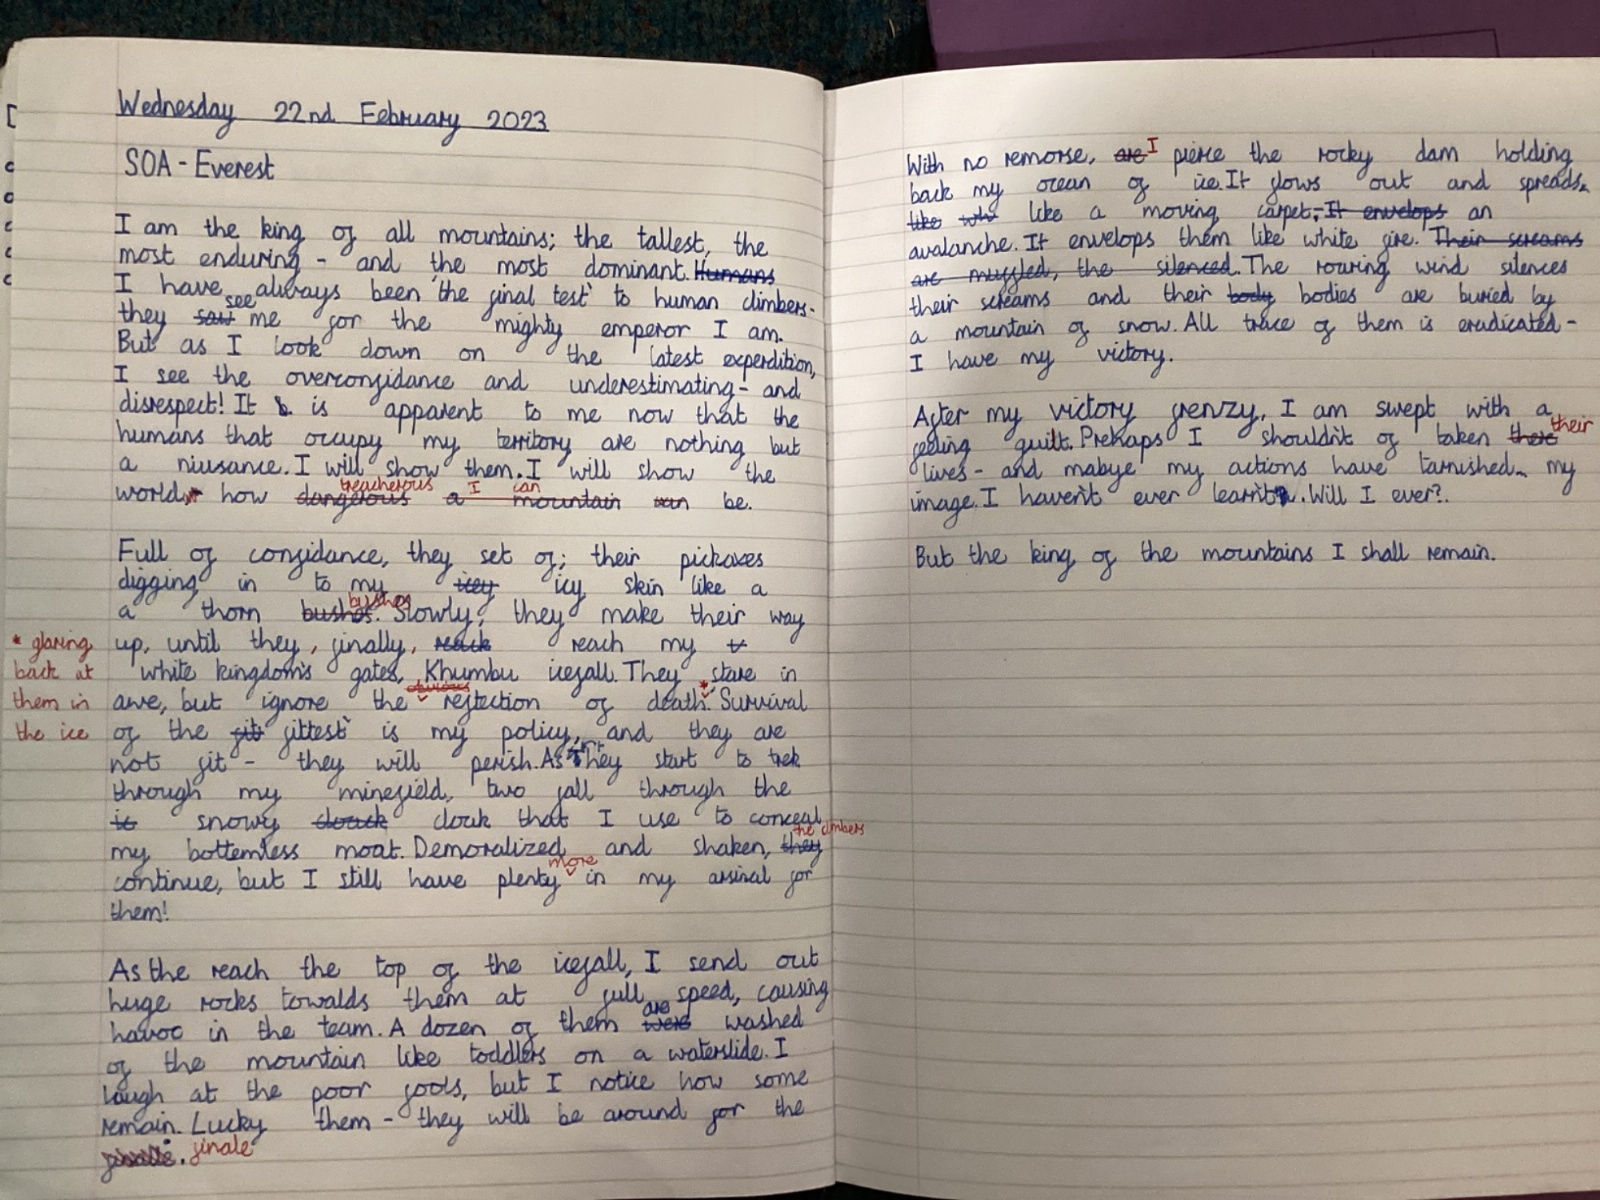 Wednesday 22nd February 2023
SOA - Everest
I am the king of all mountains; the tallest, the
most enduring - and the most dominant. Humans
I have always been 'the final test' to human climbers-
they saw see me for the mighty emperor I am.
But as I look down on the latest experdition,
I see the overconfidance and underestimating - and
disrespect! It is apparent to me now that the
humans that occupy my territory are nothing but
a niusance. I will show them. I will show the
world how dangerous treacherous a I mountain can can be.
Full of confidance, they set of; their pickaxes
digging in to my icey icy skin like a
a thorn bushes. bushes Slowly, they make their way
up, until they, finally, reack reach my
white kingdom's gates, Khumbu icefall. They stare in
awe, but ignore the obvious reflection of death*. 'Survival
of the fit fittest' is my policy, and they are
not fit - they will perish. As they start to trek
through my minefield, two fall through the
is snowy cloack cloak that I use to conceal
my bottemless moat. Demoralized and shaken, they the climbers
continue, but I still have plenty more in my arsinal for
them!
* glaring
back at
them in
the ice
As the reach the top of the icefall, I send out
huge rocks towalds them at full speed, causing
havoc in the team. A dozen of them were are washed
of the mountain like toddlers on a waterslide. I
laugh at the poor fools, but I notice how some
remain. Lucky them - they will be around for the
. finale
With no remorse, are I pierce the rocky dam holding
back my ocean of ice. It flows out and spreads
like whi like a moving carpet; It envelops an
avalanche. It envelops them like white fire. Their screams
are muffled, the silenced. The roaring wind silences
their screams and their body bodies are buried by
a mountain of snow. All trace of them is eradicated -
I have my victory.
After my victory frenzy, I am swept with a
feeling guilt. Prehaps I shouldn't of taken there their
lives - and mabye my actions have tarnished my
image. I haven't ever learnt. Will I ever?.
But the king of the mountains I shall remain.